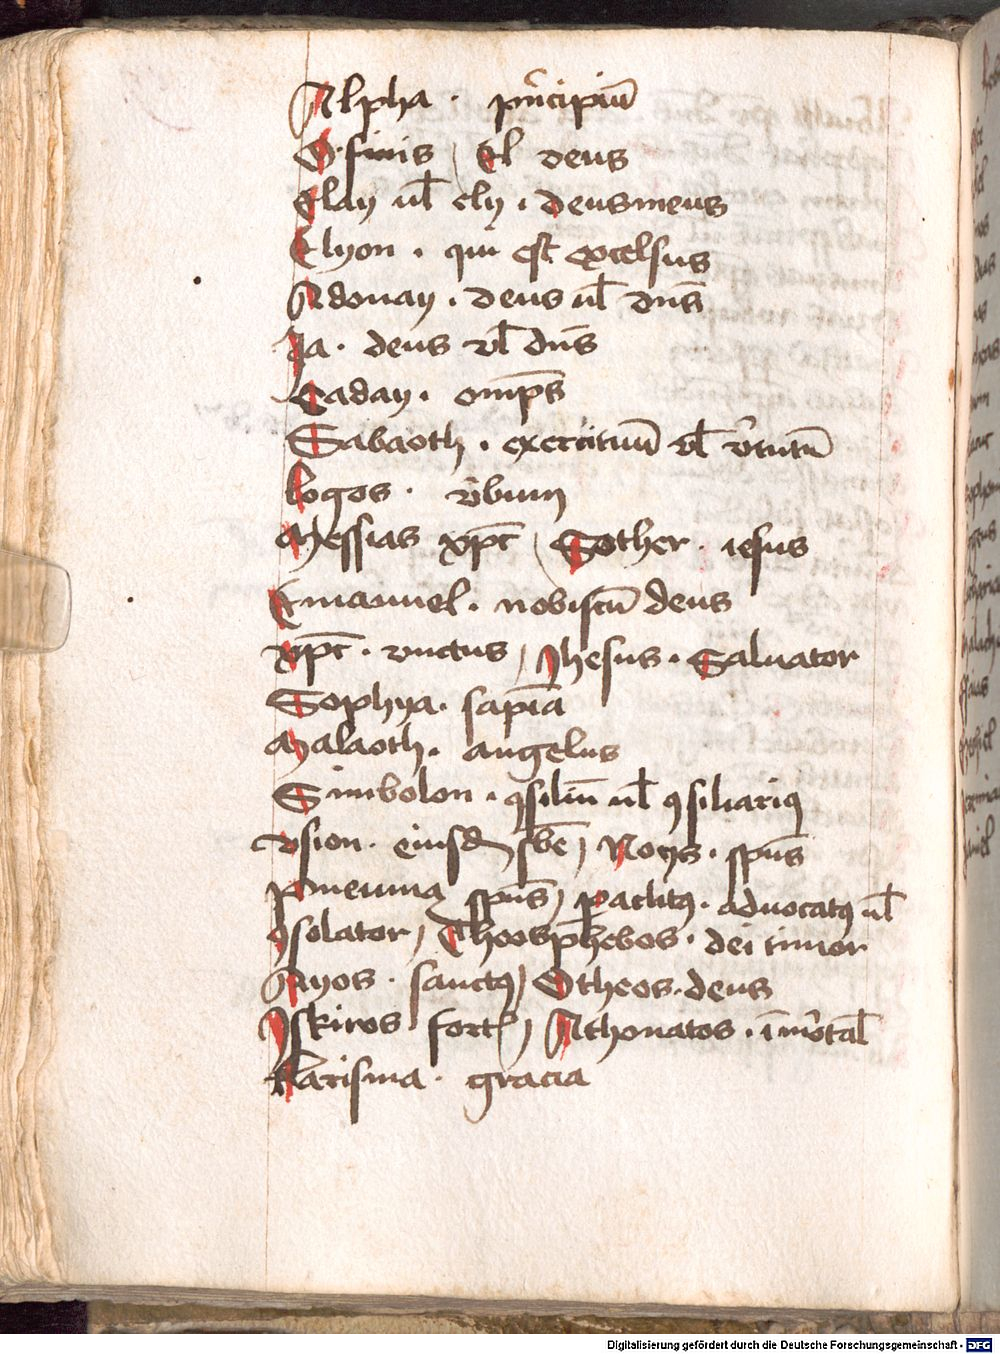 Alpha · principiū
O · finis / El deus
Elay ul̄ ely · deus meus
Elyon · qui est excelsus
Adonay · deus ul̄ dn̄s
Ia · deus vl̄ dn̄s
Caday · omīps
Sabaoth · exercituū vl̄ v̓tutū
Logos · v̓bum
Messias xp̄c / Sother · iesus
Emanuel · nobiscū deus
xp̄c · vnctus / Jhesus · Saluator
Sophya · sapīa
Malaoth · angelus
Simbolon · ꝯsiliū ul̄ ꝯsiliariꝯ
vsion · eiusd sbē / Noys · sp̄us
pneuma sp̄us / paclitꝯ · aduocatꝯ ul̄
ꝯsolator / Thoosphebos · dei timor
Ayos · sanctꝯ / Otheos · deus
Iskiros fortꝭ / Athonatos · īmo̓tal̄
Karisma · gracia
Digitalisierung gefördert durch die Deutsche Forschungsgemeinschaft - DFG